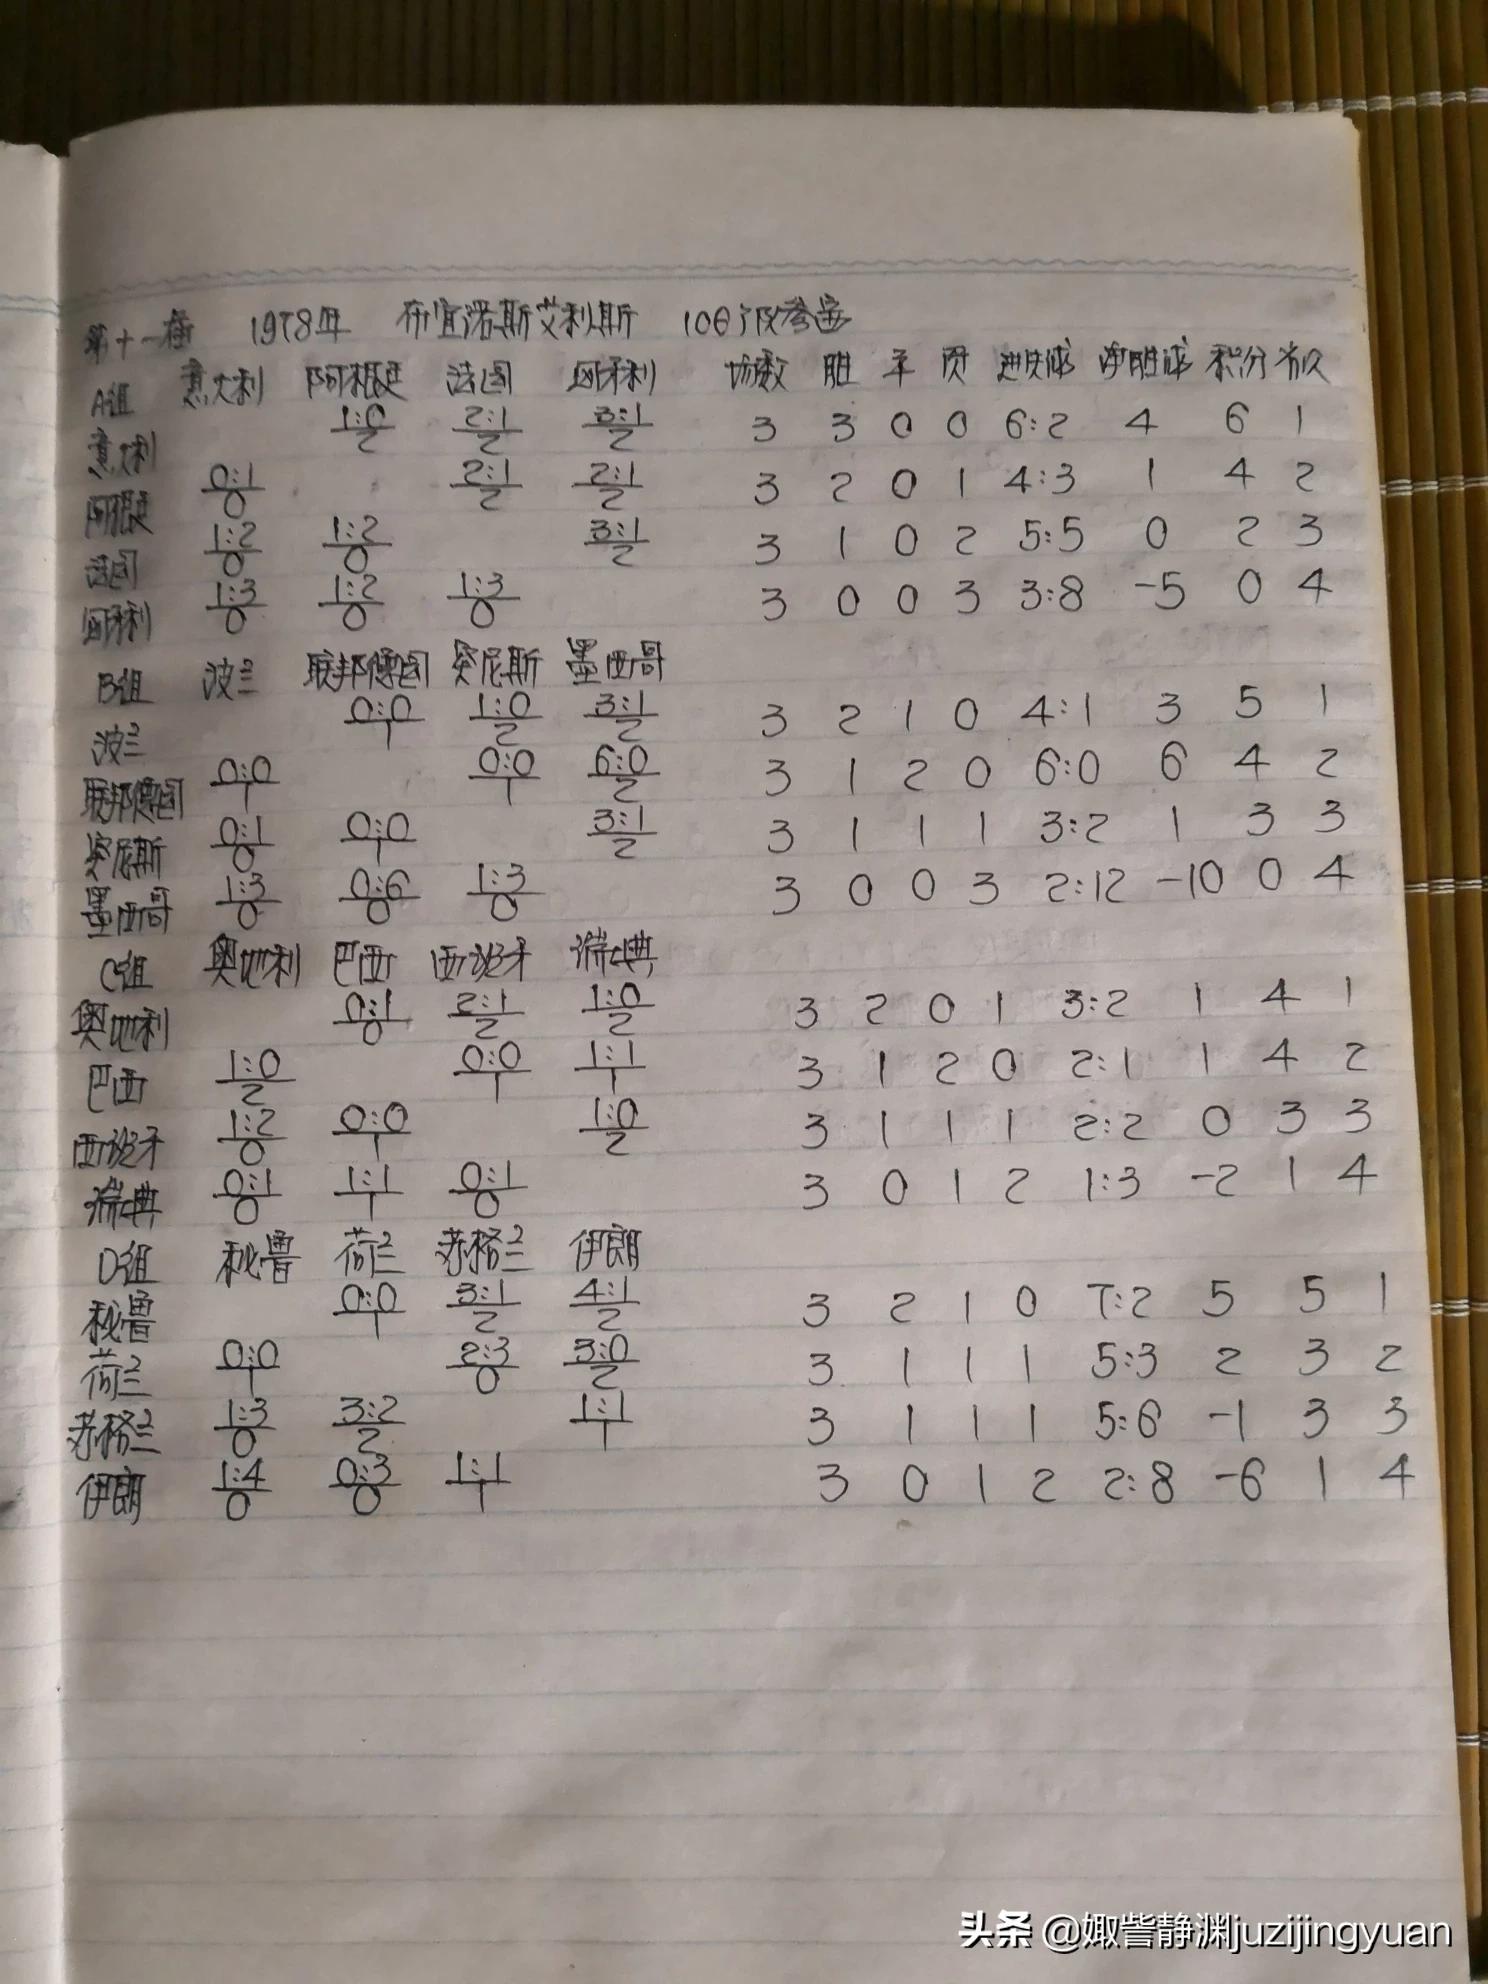 第十一届 1978年 布宜诺斯艾利斯 106个队参赛
A组 意大利 阿根廷 法国 匈牙利 场数 胜 平 负 进失球 净胜球 积分 名次
意大利 1:0/2 2:1/2 3:1/2 3 3 0 0 6:2 4 6 1
阿根廷 0:1/0 2:1/2 2:1/2 3 2 0 1 4:3 1 4 2
法国 1:2/0 1:2/0 3:1/2 3 1 0 2 5:5 0 2 3
匈牙利 1:3/0 1:2/0 1:3/0 3 0 0 3 3:8 -5 0 4
B组 波兰 联邦德国 突尼斯 墨西哥
波兰 0:0/1 1:0/2 3:1/2 3 2 1 0 4:1 3 5 1
联邦德国 0:0/1 0:0/1 6:0/2 3 1 2 0 6:0 6 4 2
突尼斯 0:1/0 0:0/1 3:1/2 3 1 1 1 3:2 1 3 3
墨西哥 1:3/0 0:6/0 1:3/0 3 0 0 3 2:12 -10 0 4
C组 奥地利 巴西 西班牙 瑞典
奥地利 0:1/0 2:1/2 1:0/2 3 2 0 1 3:2 1 4 1
巴西 1:0/2 0:0/1 1:1/1 3 1 2 0 2:1 1 4 2
西班牙 1:2/0 0:0/1 1:0/2 3 1 1 1 2:2 0 3 3
瑞典 0:1/0 1:1/1 0:1/0 3 0 1 2 1:3 -2 1 4
D组 秘鲁 荷兰 苏格兰 伊朗
秘鲁 0:0/1 3:1/2 4:1/2 3 2 1 0 7:2 5 5 1
荷兰 0:0/1 2:3/0 3:0/2 3 1 1 1 5:3 2 3 2
苏格兰 1:3/0 3:2/2 1:1/1 3 1 1 1 5:6 -1 3 3
伊朗 1:4/0 0:3/0 1:1/1 3 0 1 2 2:8 -6 1 4
头条 @娵訾静渊juzijingyuan